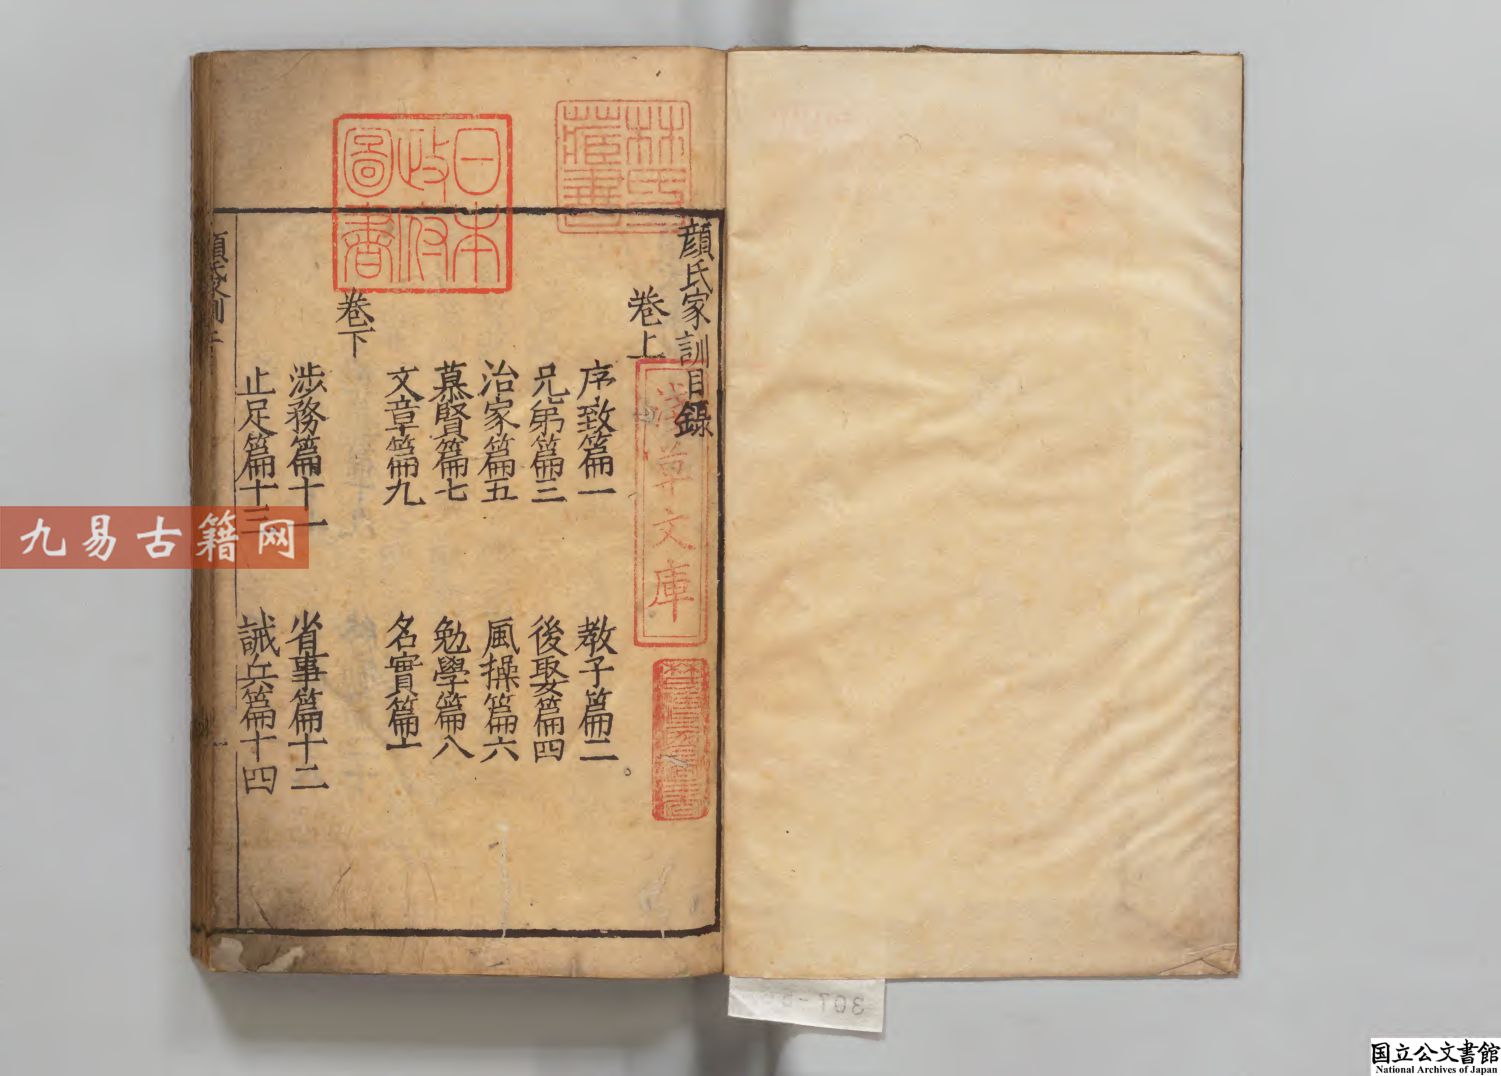 顔氏家訓目錄
卷上
序致篇一
教子篇二
兄弟篇三
後娶篇四
治家篇五
風操篇六
慕賢篇七
勉學篇八
文章篇九
名實篇十
卷下
涉務篇十一
省事篇十二
止足篇十三
誡兵篇十四
日本政府圖書
林氏藏書
淺草文庫
九易古籍网
国立公文書館
National Archives of Japan